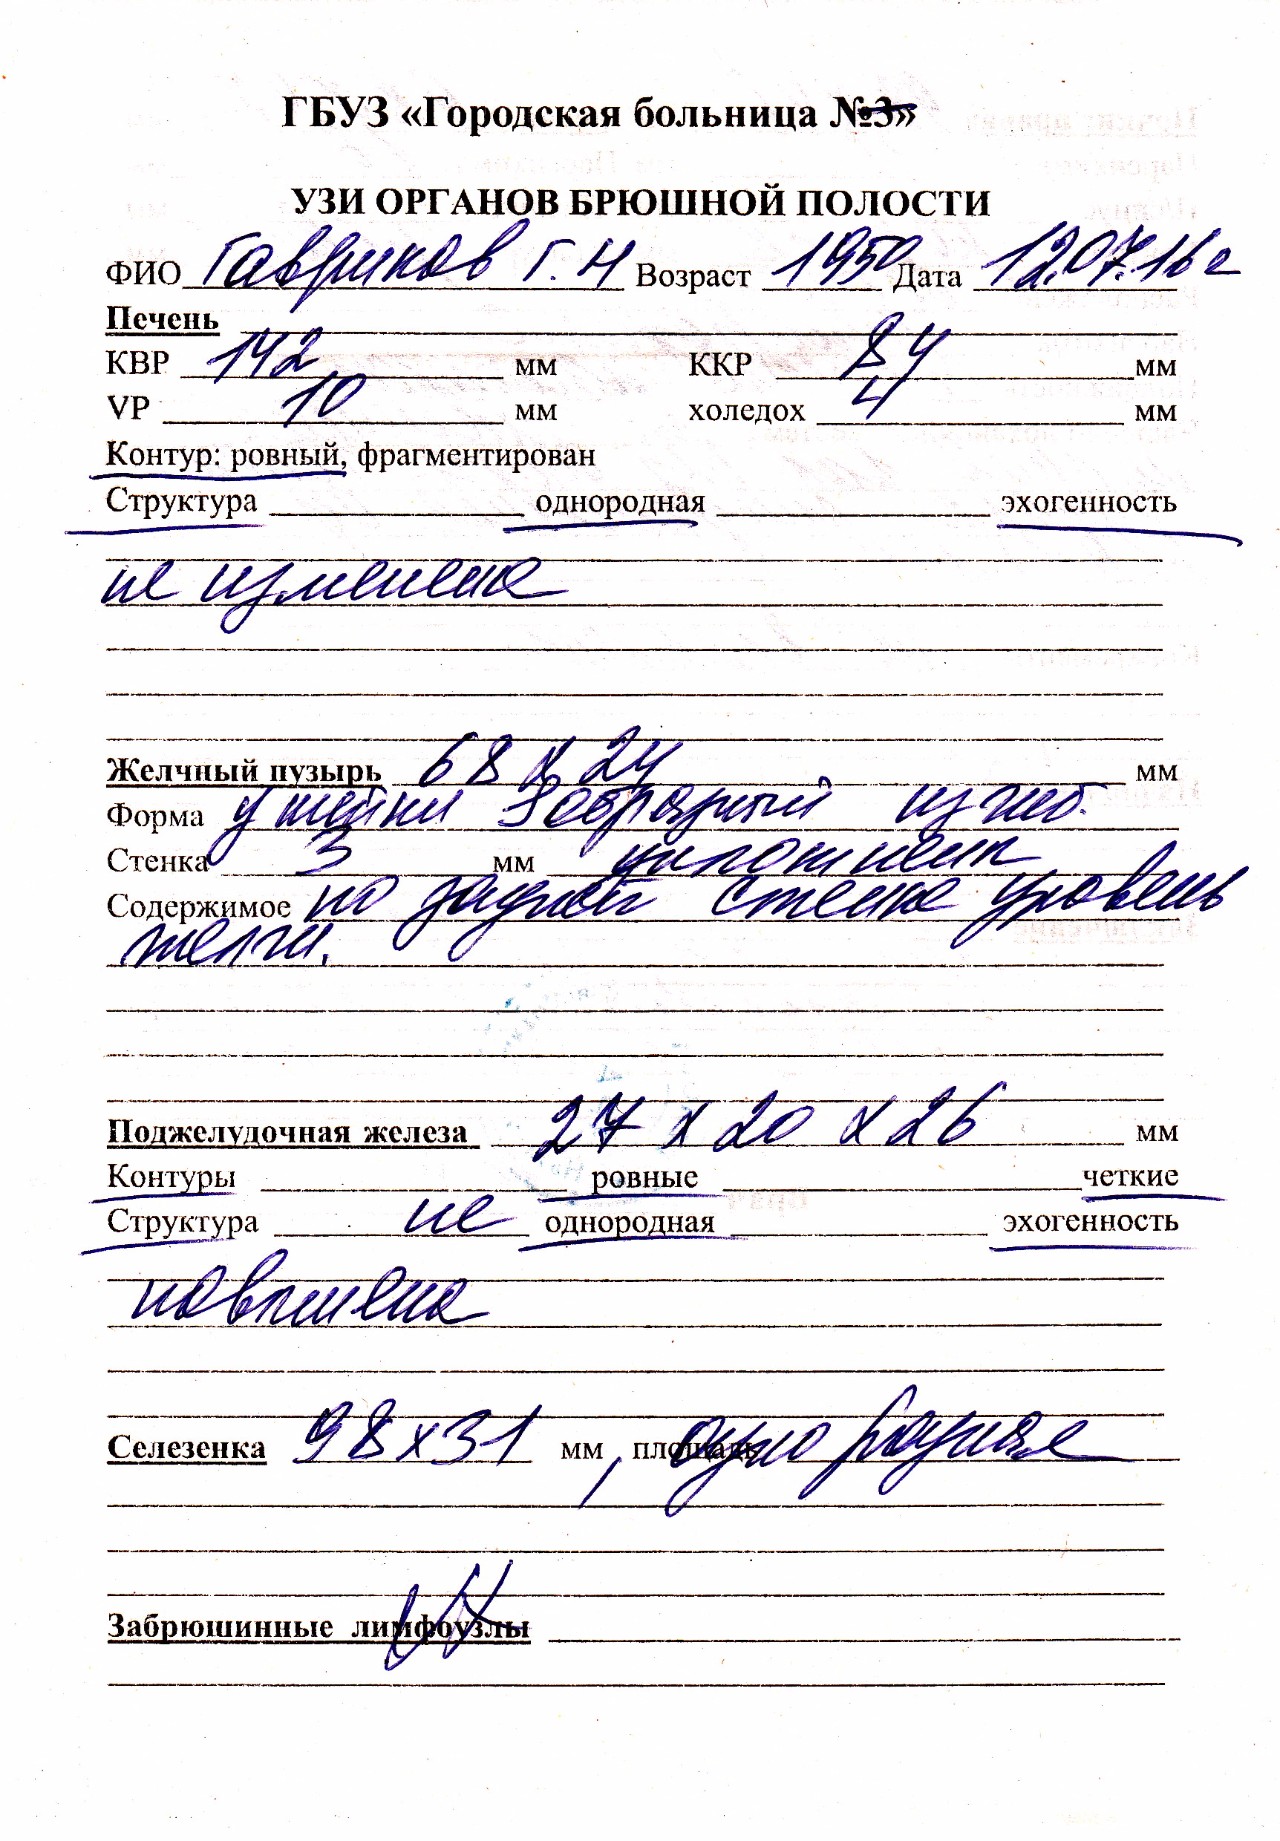 ГБУЗ «Городская больница №3»
УЗИ ОРГАНОВ БРЮШНОЙ ПОЛОСТИ
ФИО Гавриков Г. Н Возраст 1950 Дата 12.07.16 г
Печень
КВР 142 мм ККР 84 мм
VP 10 мм холедох 4 мм
Контур: ровный, фрагментирован
Структура однородная эхогенность
не изменена
Желчный пузырь 68 х 24 мм
Форма у шейки S образный изгиб.
Стенка 3 мм уплотнена
Содержимое по задней стенке уровень
желчи.
Поджелудочная железа 27 х 20 х 26 мм
Контуры ровные четкие
Структура не однородная эхогенность
повышена
Селезенка 98 х 31 мм, площадь однородная
Забрюшинные лимфоузлы